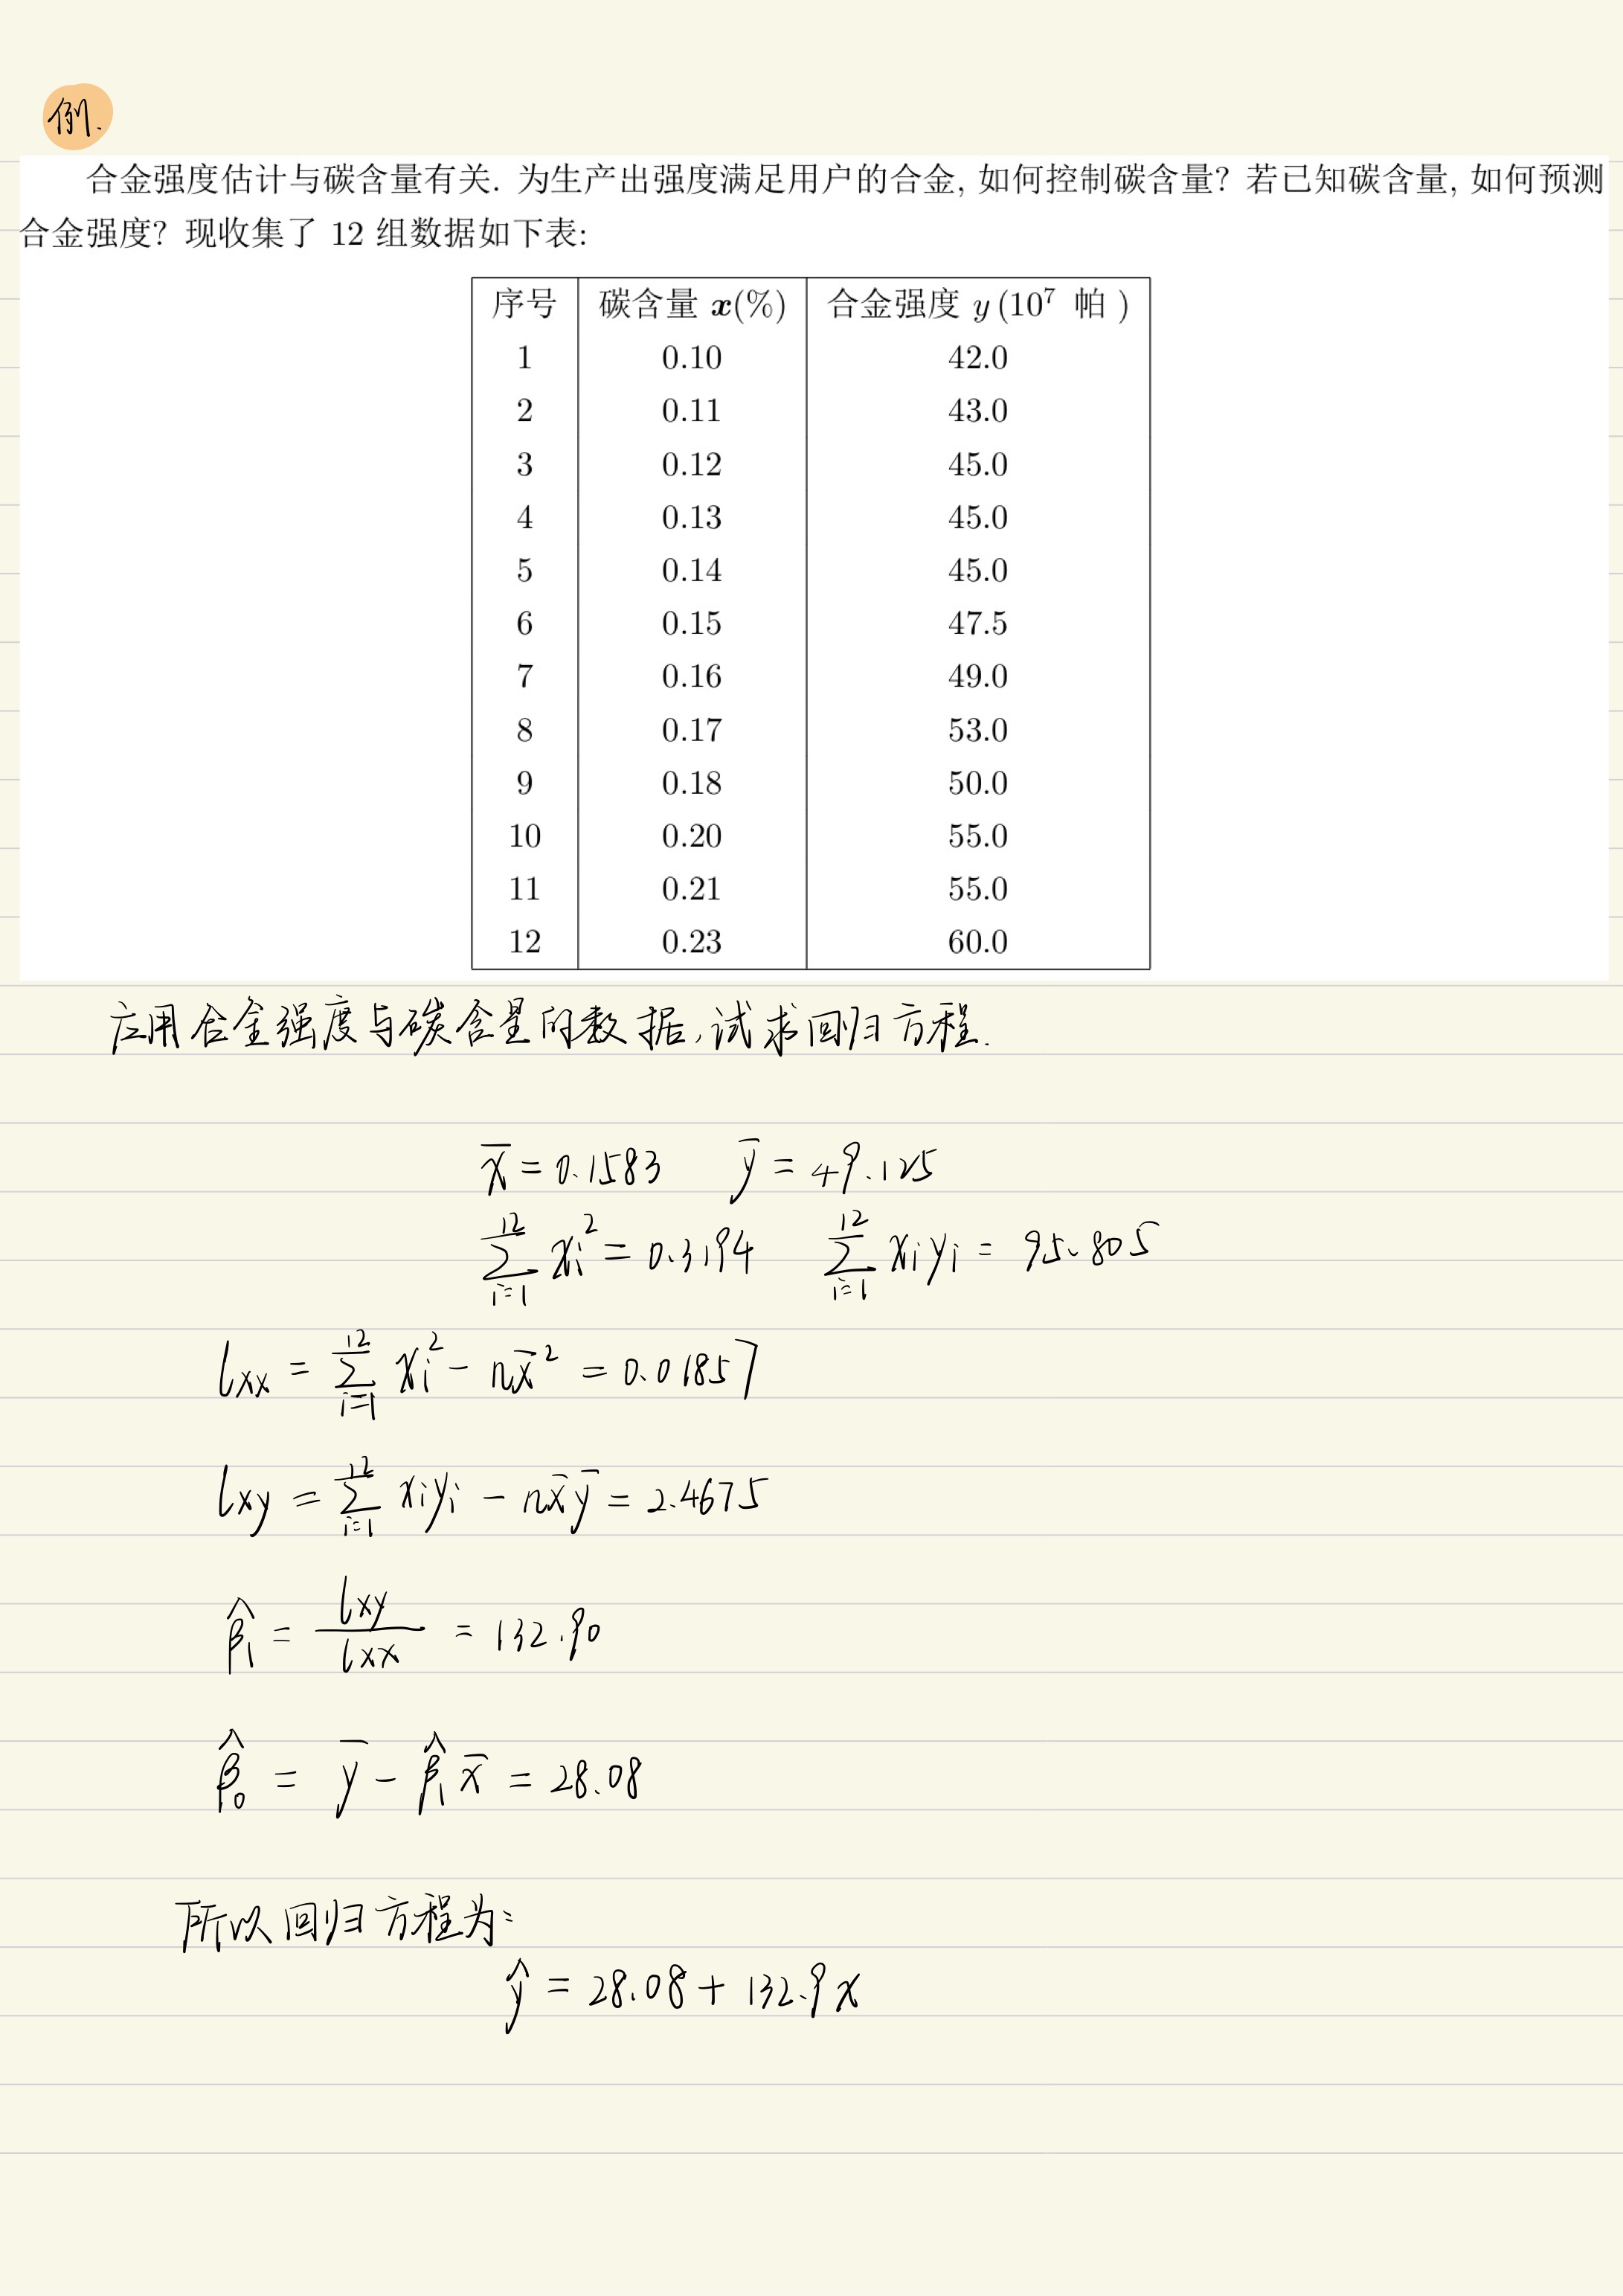 例.
合金强度估计与碳含量有关. 为生产出强度满足用户的合金, 如何控制碳含量? 若已知碳含量, 如何预测
合金强度? 现收集了 12 组数据如下表:
序号 碳含量 x(%) 合金强度 y (10⁷ 帕 )
1 0.10 42.0
2 0.11 43.0
3 0.12 45.0
4 0.13 45.0
5 0.14 45.0
6 0.15 47.5
7 0.16 49.0
8 0.17 53.0
9 0.18 50.0
10 0.20 55.0
11 0.21 55.0
12 0.23 60.0
应用合金强度与碳含量的数据,试求回归方程.
x̄ = 0.1583 ȳ = 49.125
∑_{i=1}^{12} xᵢ² = 0.3194 ∑_{i=1}^{12} xᵢyᵢ = 95.805
lxx = ∑_{i=1}^{12} xᵢ² - nx̄² = 0.01857
lxy = ∑_{i=1}^{12} xᵢyᵢ - nx̄ȳ = 2.4675
β̂₁ = lxy / lxx = 132.90
β̂₀ = ȳ - β̂₁x̄ = 28.08
所以回归方程为:
ŷ = 28.08 + 132.9x